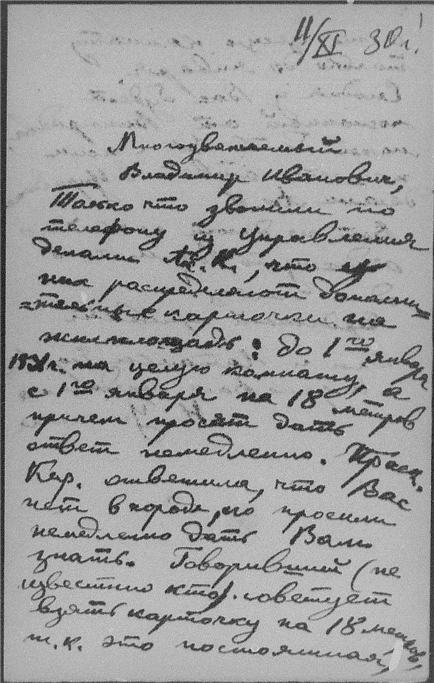 11/XI 30 г.
Многоуважаемый
Владимир Иванович,
Только что звонили по
телефону из Управления
делами Ак. К., что у
них распределяют дополни-
=тельные карточки на
жилплощадь: до 1го января
1931 г. на целую комнату, а
с 1го января на 18 метров
причем просят дать
ответ немедленно. Праск.
Кир. ответила, что Вас
нет в городе, но просили
немедленно дать Вам
знать. Говоривший (не
известно кто). советует
взять карточку на 18 метров,
т.к. это постоянная,